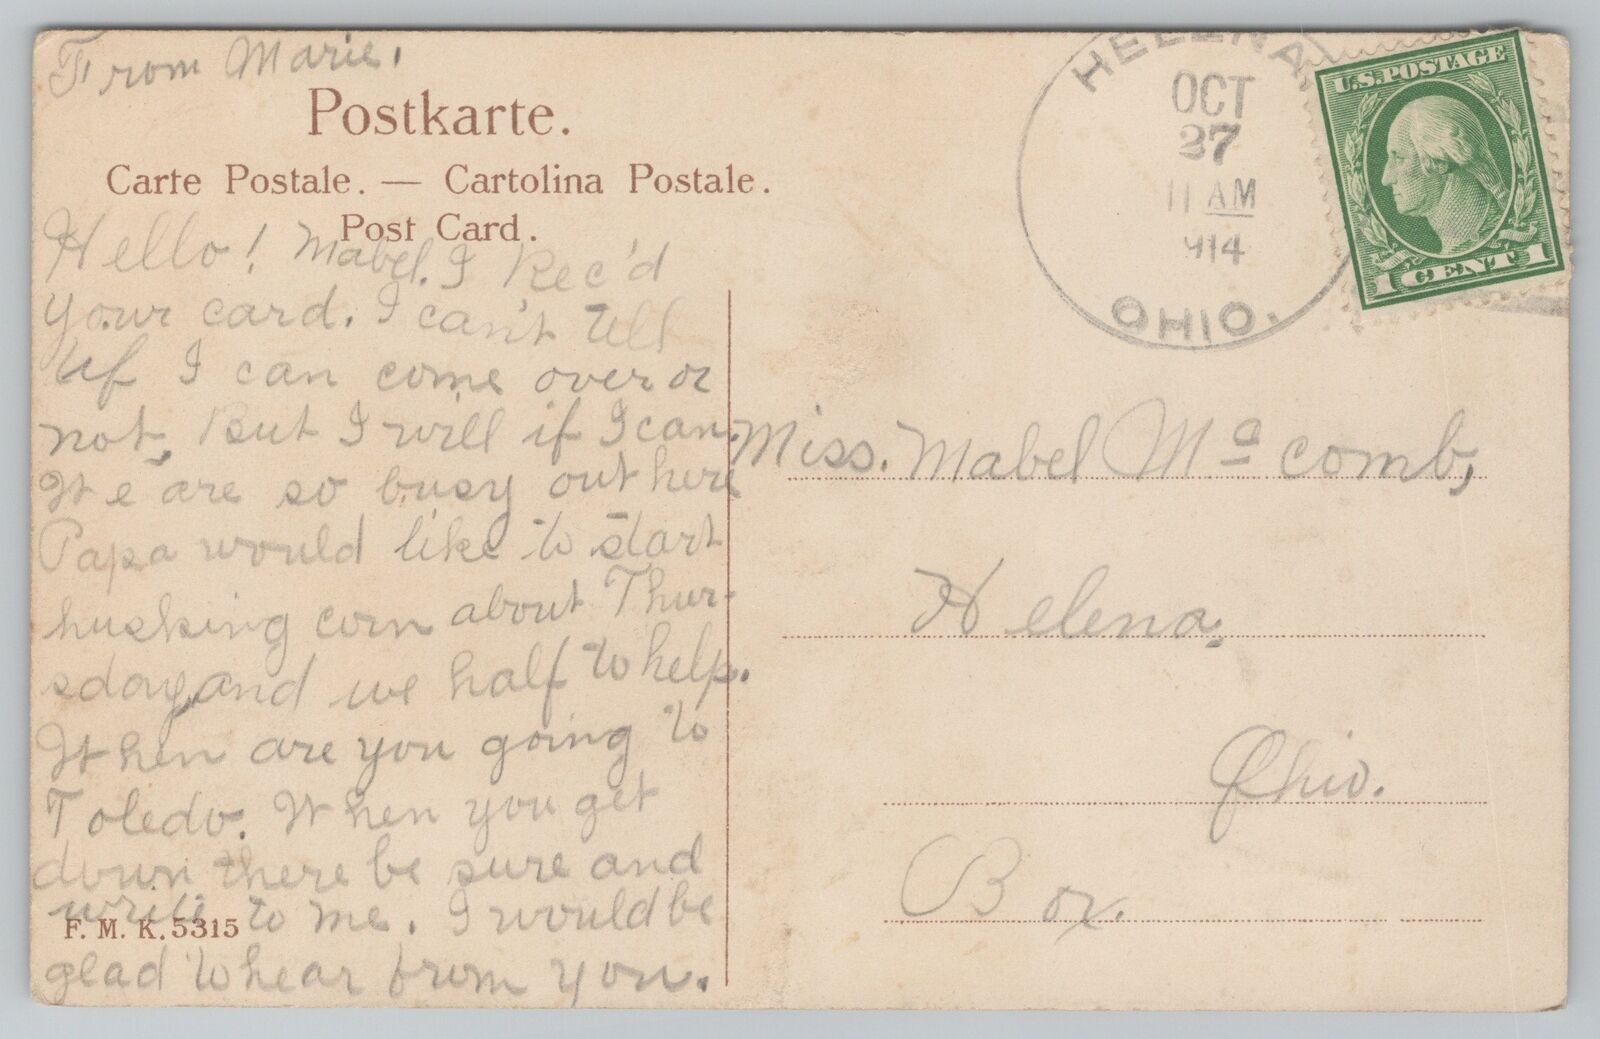 From Marie.
Postkarte.
Carte Postale. — Cartolina Postale.
Post Card.
Hello! Mabel. I Rec'd
your card. I can't tell
if I can come over or
not, But I will if I can.
We are so busy out here
Papa would like to start
husking corn about Thur-
sday, and we half to help.
When are you going to
Toledo. When you get
down there be sure and
write to me. I would be
glad to hear from you.
F. M. K. 5315
HELENA
OCT
27
11 AM
914
OHIO.
U.S. POSTAGE
1 CENT 1
Miss. Mabel Mc comb,
Helena,
Ohio.
Box.